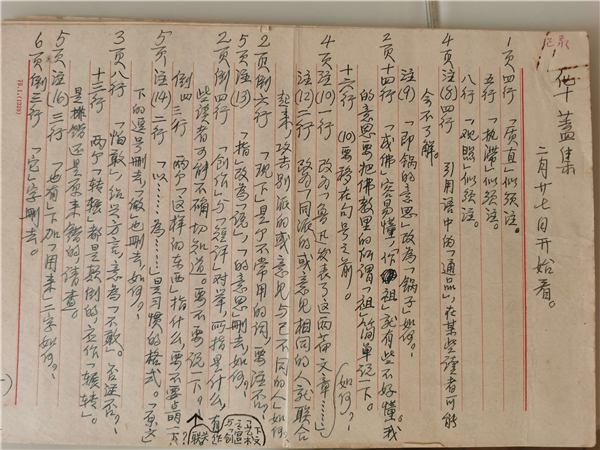 华盖集
二月廿七日开始看。
1页四行 「质直」似须注。
五行 「执滞」似须注。
八行 「观照」似须注。
4页注(8)四行 引用语中的「通品」，在某些读者可能
会不了解。
注(9) 「即锅的意思」改为「锅子」如何？
2页十四行 「成佛」容易懂，「作祖」就有些不好懂。我
的意思要把佛教里的所谓「祖」简单说一下。
十六行 (10)要移在句号之前。
4页注(10)一行 改为「鲁迅发表了这两篇文章……」
（如何？）
注(12)二行 改为「同派的或意见相同的人就联合
起来，攻击别派的或意见与己不同的人」如何？
2页倒六行 「现下」是个不常用的词，要注不？
5页注(13) 「指」改为「说」，「的意思」删去，如何？
2页倒四行 「创作」与「短评」对举，所指是什么，有
些读者可能不确切知道。要不要说一下？
倒四三行 两个「这样的东西」指什么，要不要点明一下？
5页注(14)二行 「以……为……」是习惯的格式。「原文」
下的逗号删去，「做」也删去，如何？
3页八行 「怕敢」，绍兴方言，意为「不敢」。
十三行 两个「转辗」都是颠倒的，应作「辗转」。
是排错还是原来错的，请查。
5页注(16)三行 「也有」下加「用来」二字如何？
6页倒三行 「它」字删去。